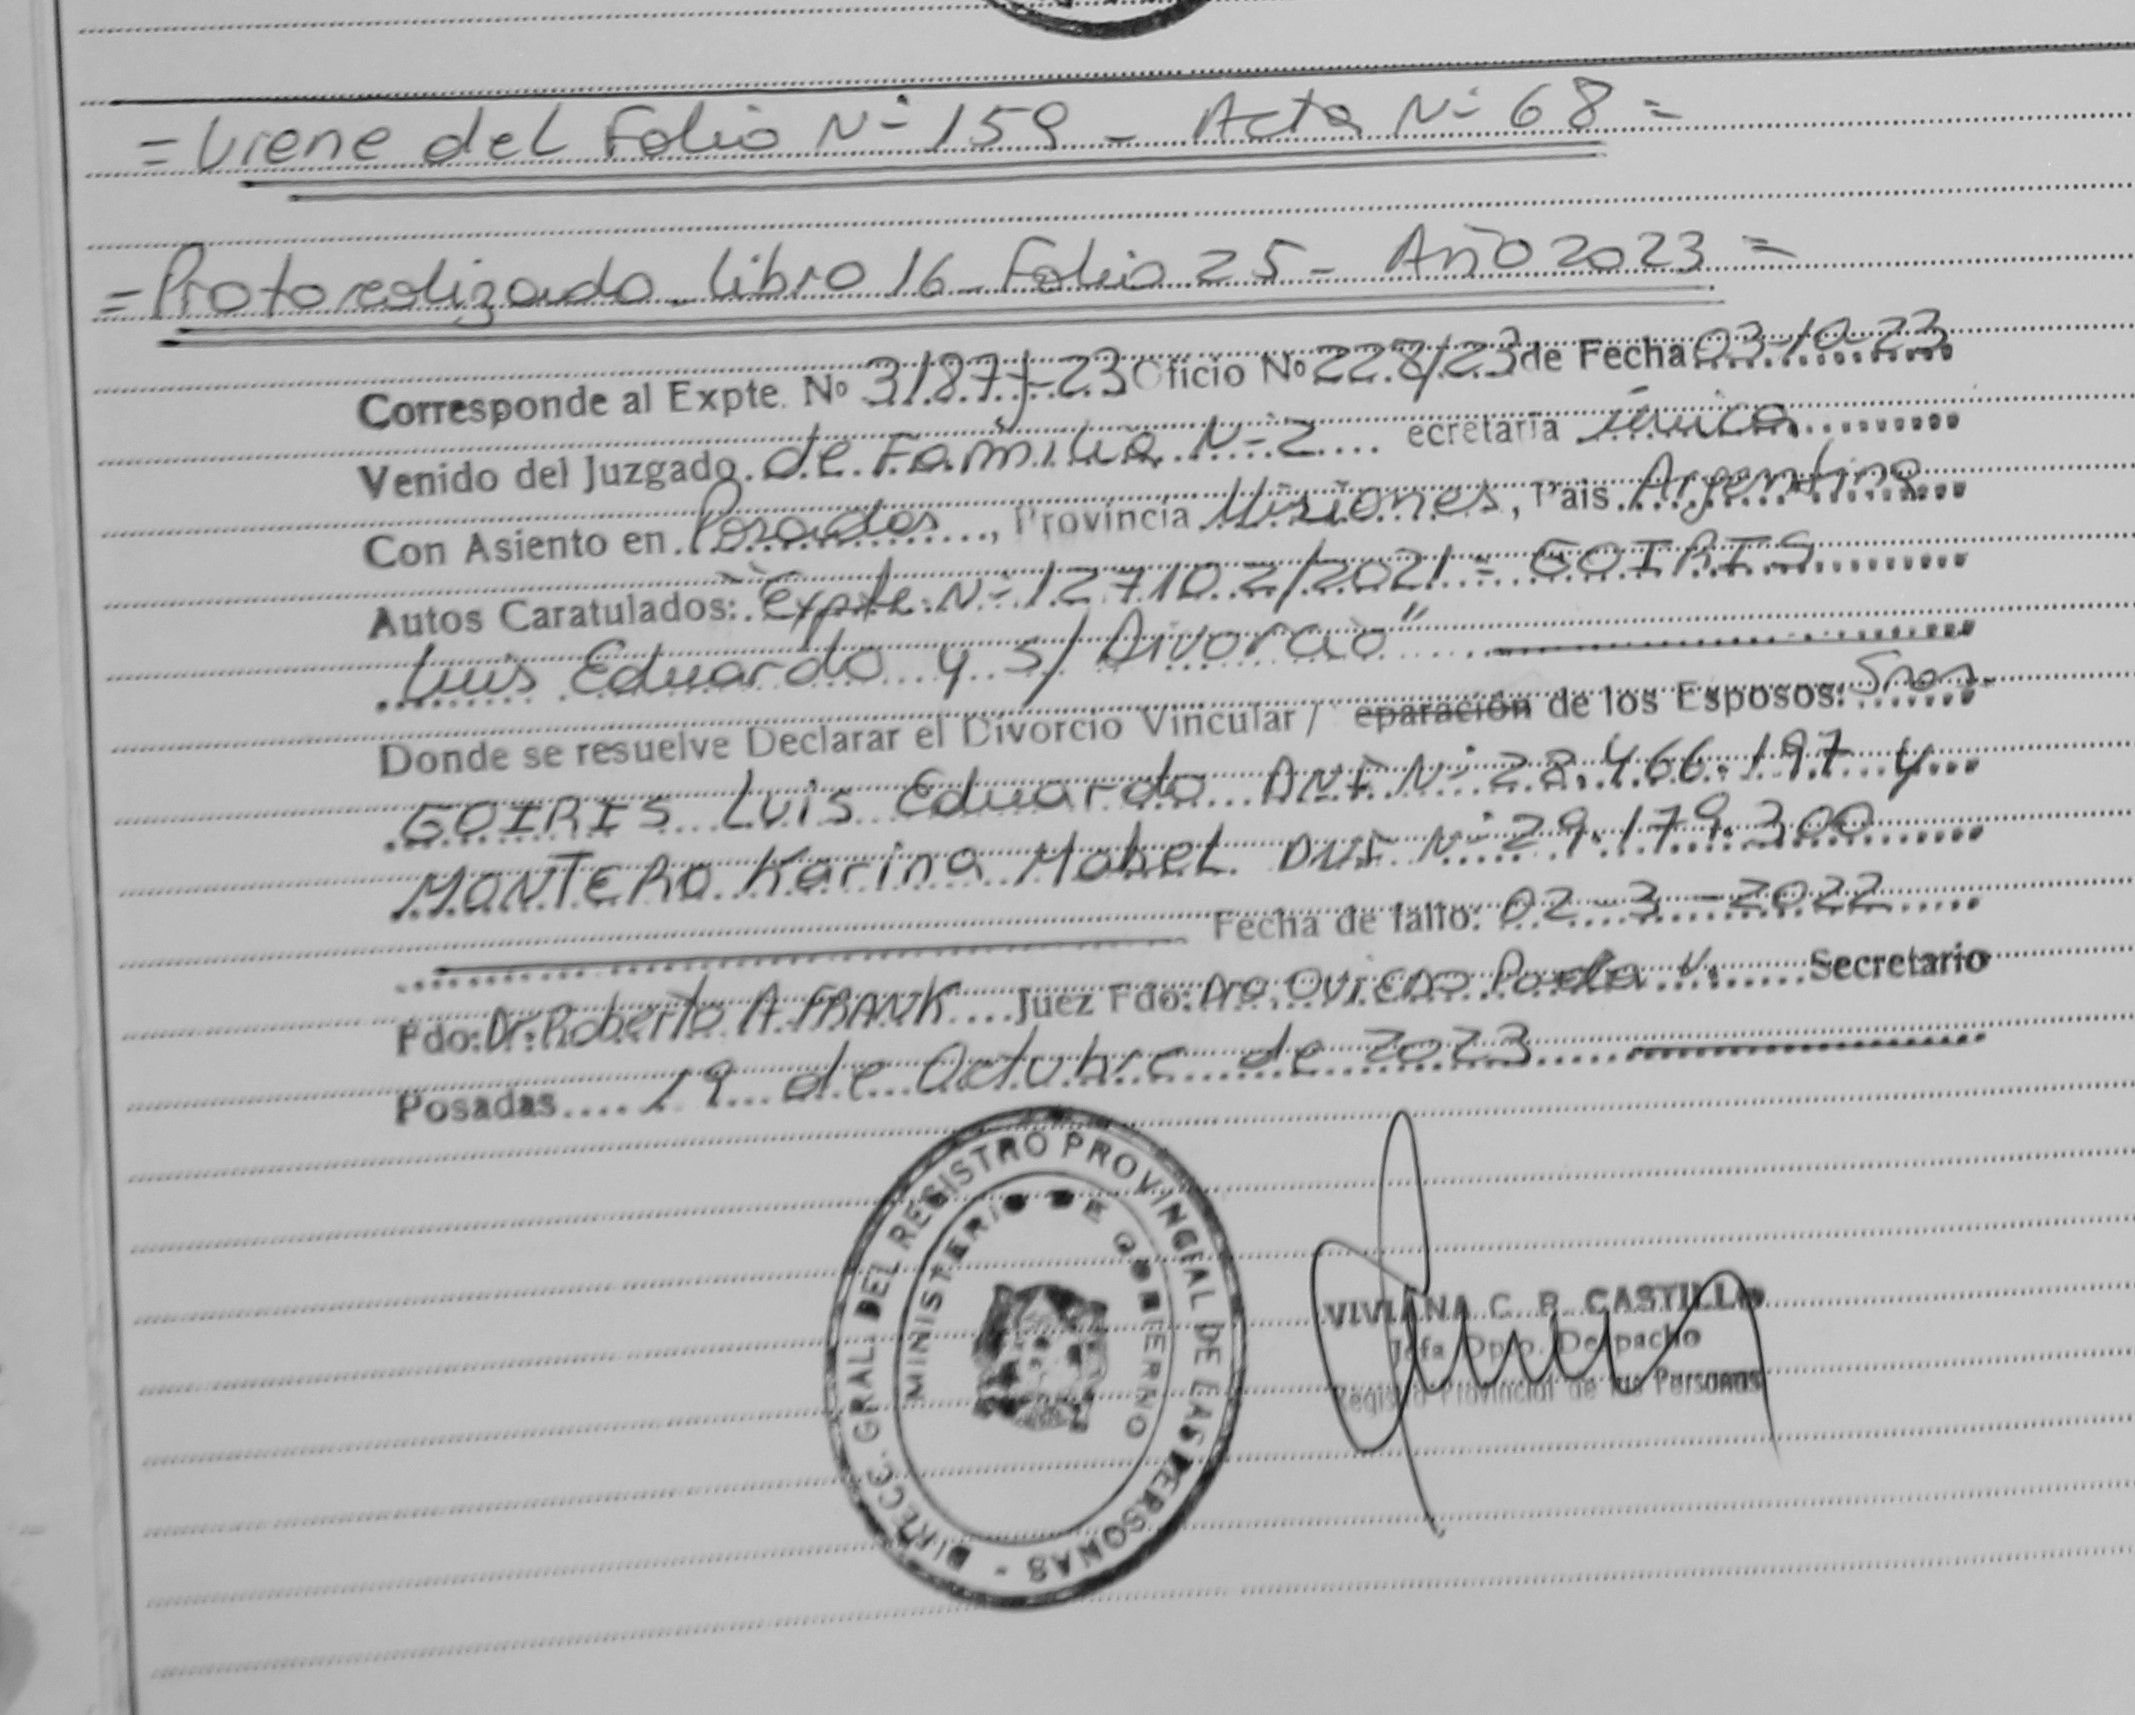 = Viene del Folio Nº 159 - Acta Nº 68 =
= Protocolizado - Libro 16 - Folio 25 - Año 2023 =
Corresponde al Expte. Nº 3187-J-23 Oficio Nº 228/23 de Fecha 03-10-23
Venido del Juzgado de Familia Nº 2 ecretaria única
Con Asiento en Posadas, Provincia Misiones, Pais Argentina
Autos Caratulados: "Expte Nº 127102/2021 - GOIRIS
Luis Eduardo y s/ Divorcio"
Donde se resuelve Declarar el Divorcio Vincular / eparación de los Esposos: Sres.
GOIRIS Luis Eduardo DNI Nº 28.466.197 y
MONTERO Karina Mabel DNI Nº 29.179.300
Fecha de fallo: 02-3-2022
Fdo: Dr. Roberto A. FRANK Juez Fdo: Dra. OVIEDO Paola V. Secretario
Posadas 19 de Octubre de 2023
DIRECC. GRAL. DEL REGISTRO PROVINCIAL DE LAS PERSONAS -
MINISTERIO DE GOBIERNO
VIVIANA C. R. CASTILLO
Jefa Dpto. Despacho
Registro Provincial de las Personas